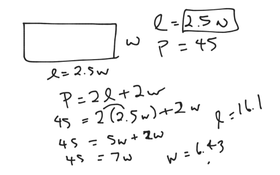 l = 2.5w
w
P = 45
l = 2.5w
P = 2l + 2w
45 = 2(2.5w) + 2w
45 = 5w + 2w
l = 16.1
45 = 7w
w = 6.43